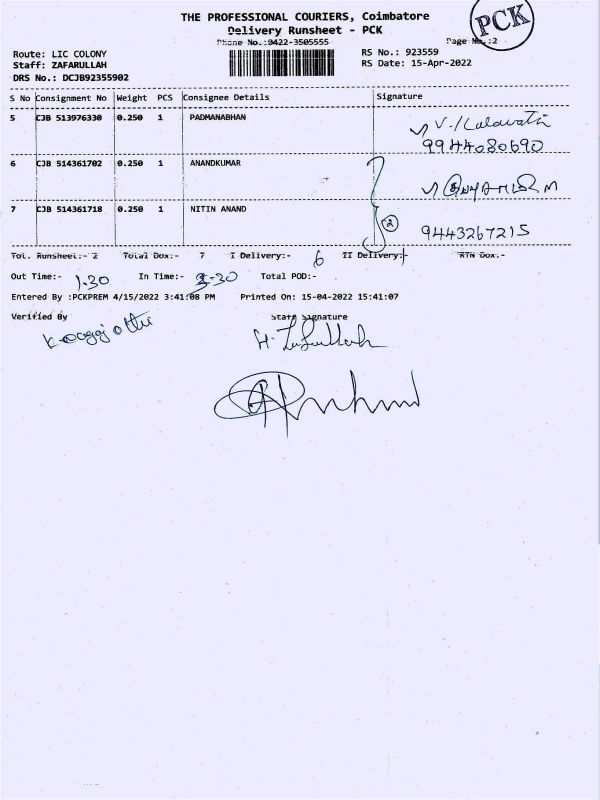 THE PROFESSIONAL COURIERS, Coimbatore
Delivery Runsheet - PCK
PCK
Phone No.:0422-3505555
Page No.:2
Route: LIC COLONY
RS No.: 923559
Staff: ZAFARULLAH
RS Date: 15-Apr-2022
DRS No.: DCJB92355902
S No Consignment No Weight PCS Consignee Details Signature
5 CJB 513976330 0.250 1 PADMANABHAN
9944080690
6 CJB 514361702 0.250 1 ANANDKUMAR
7 CJB 514361718 0.250 1 NITIN ANAND
2
9443267215
Tot. Runsheet:- 2 Total Dox:- 7 I Delivery:- 6 II Delivery:- RTN Dox.-
Out Time:- 1.30 In Time:- 30 Total POD:-
Entered By :PCKPREM 4/15/2022 3:41:08 PM Printed On: 15-04-2022 15:41:07
Verified By Staff Signature